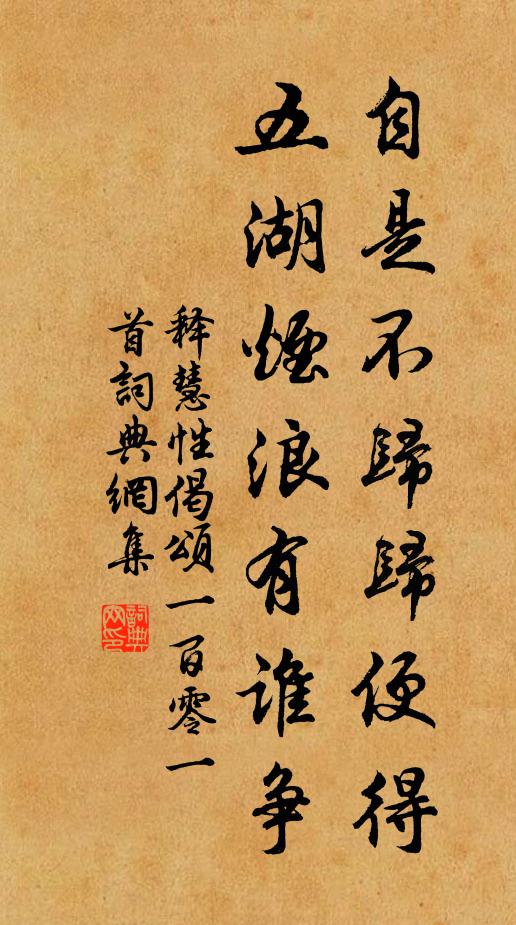 自是不歸歸便得
五湖煙浪有誰爭
释慧性偈頌一百零一
首詞典網集
詞典网印